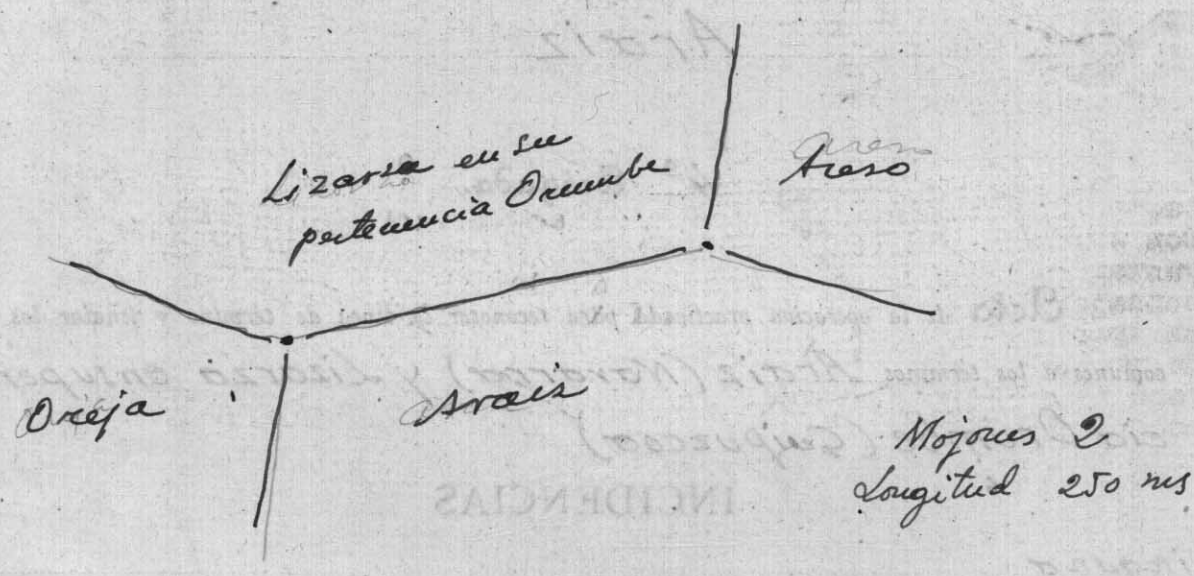 Lizarza en su
pertenencia Orumbe
Areso
Oreja
Araiz
Mojones 2
Longitud 250 ms